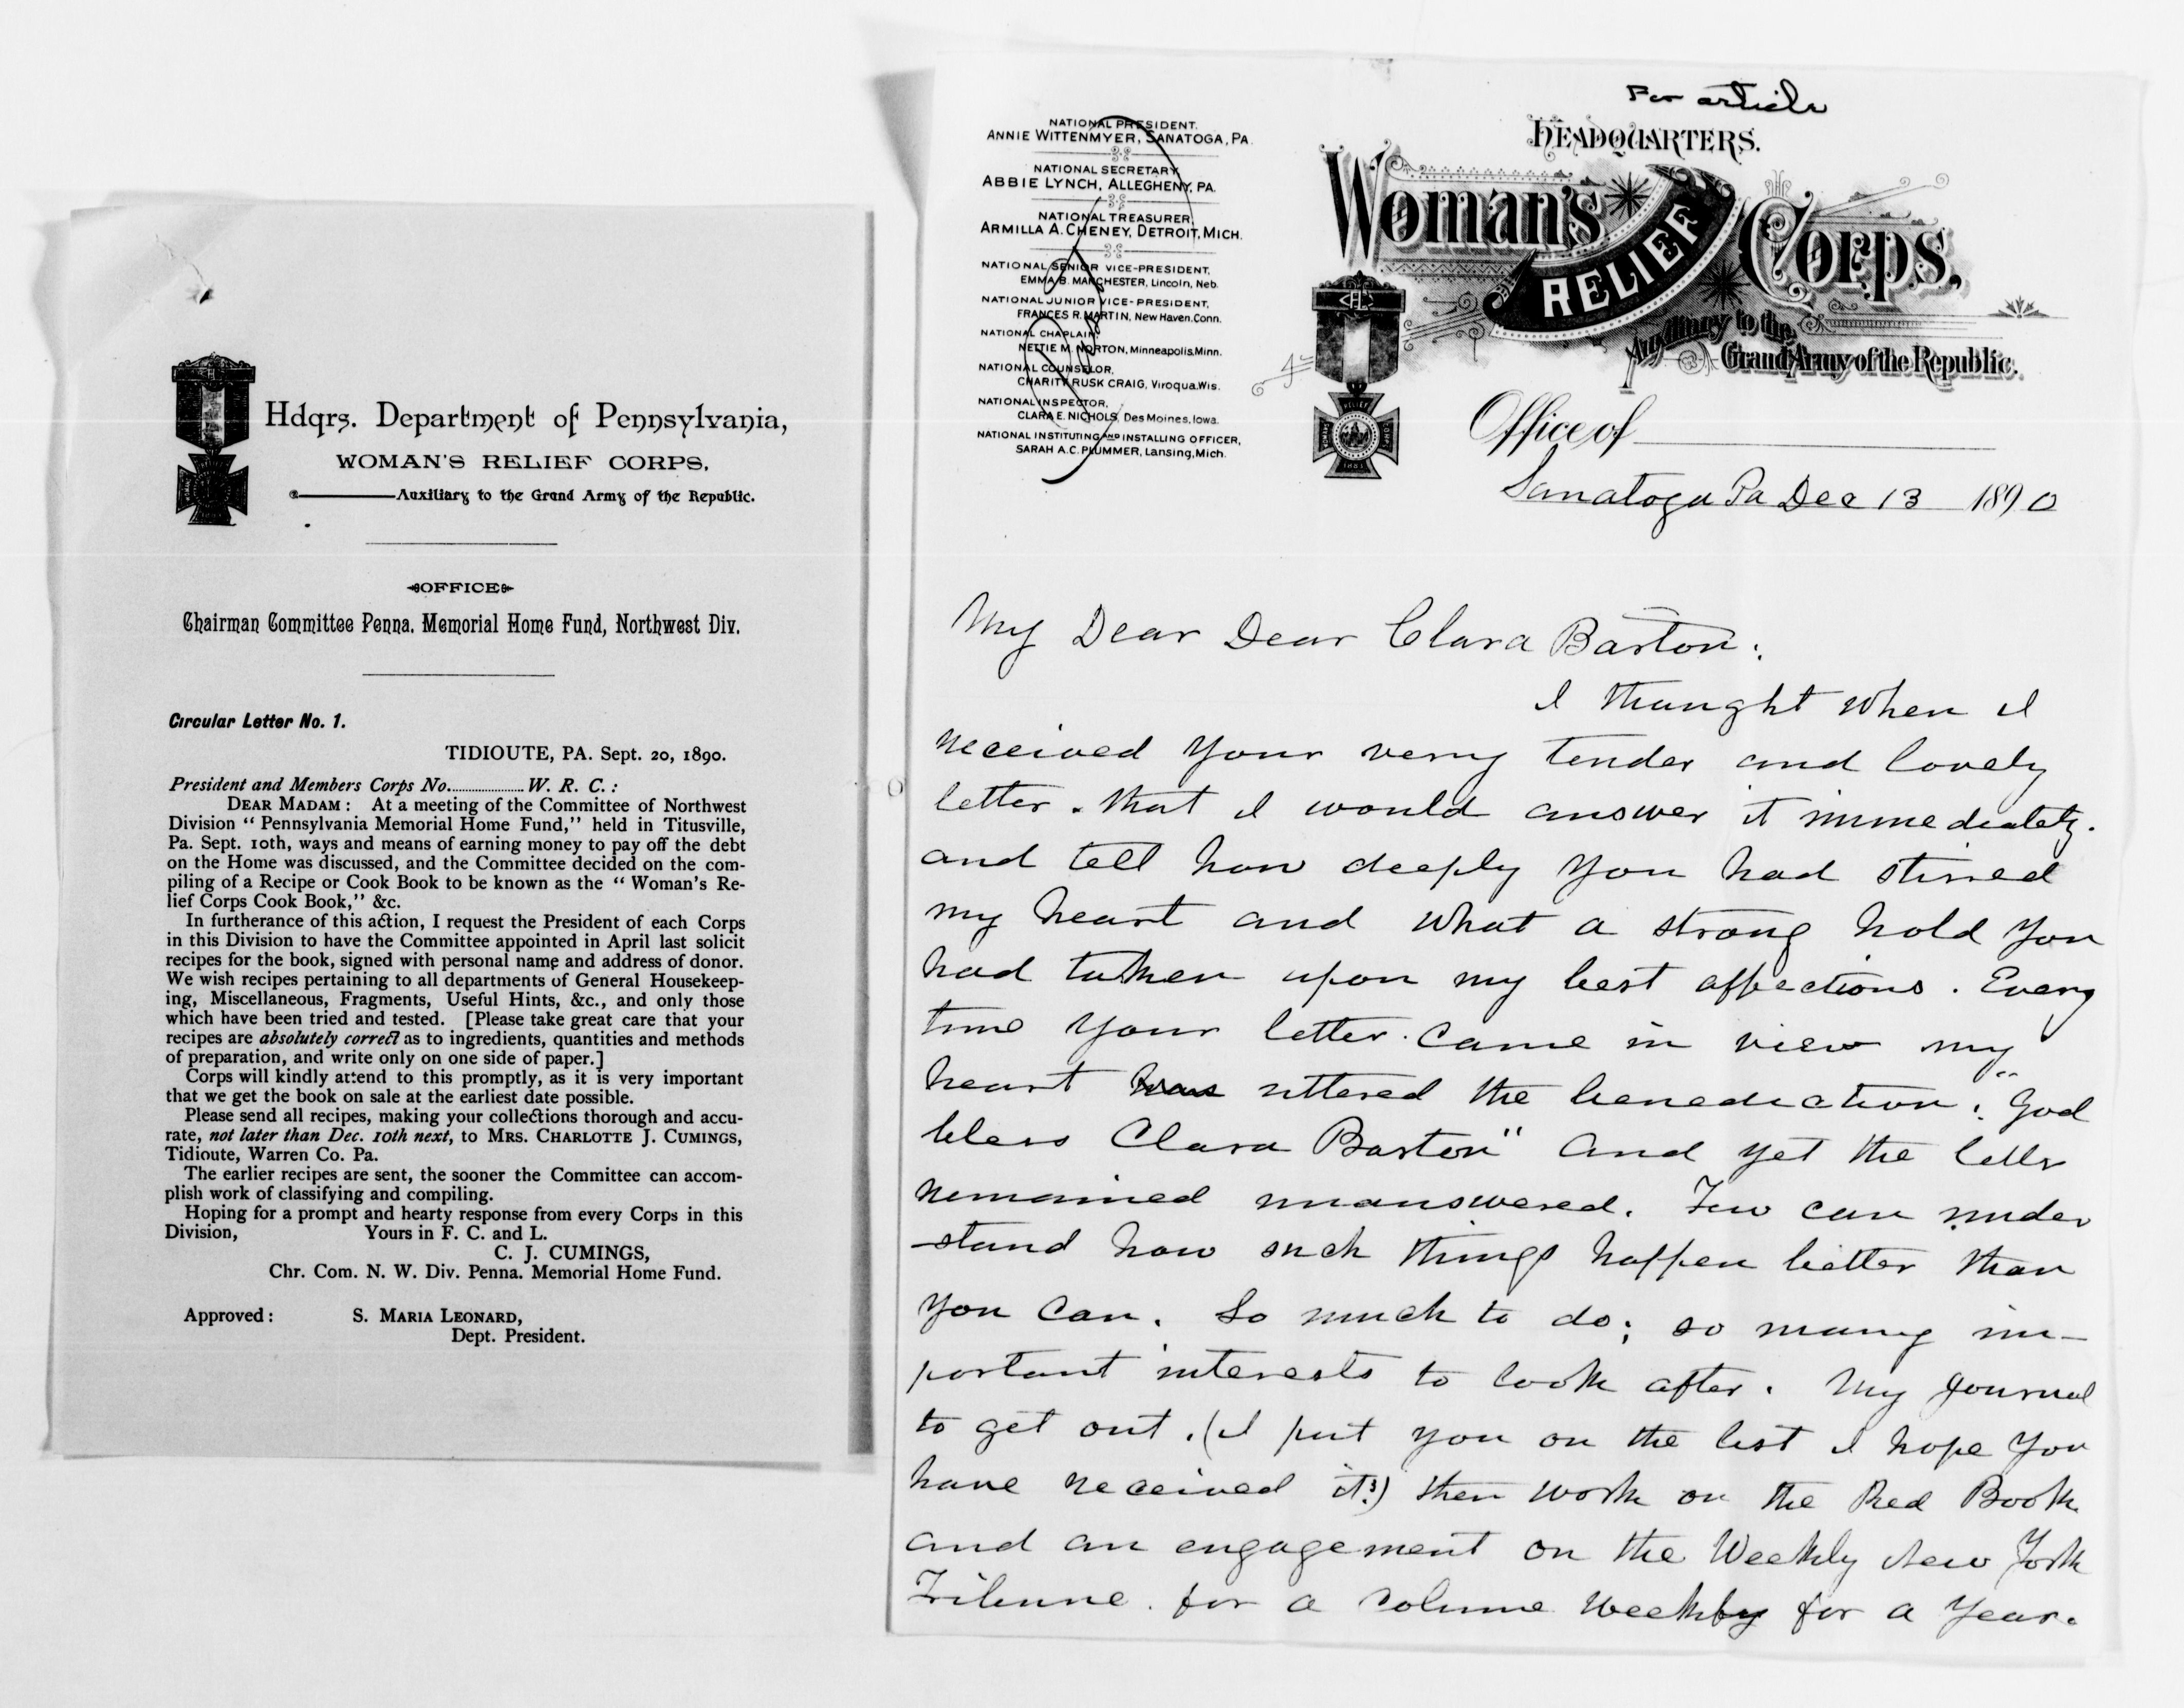 Hdqrs. Department of Pennsylvania,
WOMAN'S RELIEF CORPS,
Auxiliary to the Grand Army of the Republic.
OFFICE
Chairman Committee Penna. Memorial Home Fund, Northwest Div.
Circular Letter No. 1.
TIDIOUTE, PA. Sept. 20, 1890.
President and Members Corps No.................... W. R. C. :
DEAR MADAM : At a meeting of the Committee of Northwest
Division " Pennsylvania Memorial Home Fund," held in Titusville,
Pa. Sept. 10th, ways and means of earning money to pay off the debt
on the Home was discussed, and the Committee decided on the com-
piling of a Recipe or Cook Book to be known as the " Woman's Re-
lief Corps Cook Book," &c.
In furtherance of this action, I request the President of each Corps
in this Division to have the Committee appointed in April last solicit
recipes for the book, signed with personal name and address of donor.
We wish recipes pertaining to all departments of General Housekeep-
ing, Miscellaneous, Fragments, Useful Hints, &c., and only those
which have been tried and tested. [Please take great care that your
recipes are absolutely correct as to ingredients, quantities and methods
of preparation, and write only on one side of paper.]
Corps will kindly attend to this promptly, as it is very important
that we get the book on sale at the earliest date possible.
Please send all recipes, making your collections thorough and accu-
rate, not later than Dec. 10th next, to MRS. CHARLOTTE J. CUMINGS,
Tidioute, Warren Co. Pa.
The earlier recipes are sent, the sooner the Committee can accom-
plish work of classifying and compiling.
Hoping for a prompt and hearty response from every Corps in this
Division, Yours in F. C. and L.
C. J. CUMINGS,
Chr. Com. N. W. Div. Penna. Memorial Home Fund.
Approved : S. MARIA LEONARD,
Dept. President.
For article
NATIONAL PRESIDENT,
ANNIE WITTENMYER, SANATOGA, PA.
NATIONAL SECRETARY,
ABBIE LYNCH, ALLEGHENY, PA.
NATIONAL TREASURER,
ARMILLA A. CHENEY, DETROIT, MICH.
NATIONAL SENIOR VICE-PRESIDENT,
EMMA B. MANCHESTER, Lincoln, Neb.
NATIONAL JUNIOR VICE-PRESIDENT,
FRANCES R. MARTIN, New Haven, Conn.
NATIONAL CHAPLAIN,
NETTIE M. NORTON, Minneapolis, Minn.
NATIONAL COUNSELOR,
CHARITY RUSK CRAIG, Viroqua, Wis.
NATIONAL INSPECTOR,
CLARA E. NICHOLS, Des Moines, Iowa.
NATIONAL INSTITUTING AND INSTALLING OFFICER,
SARAH A. C. PLUMMER, Lansing, Mich.
HEADQUARTERS.
Woman's RELIEF Corps,
Auxiliary to the
Grand Army of the Republic.
Office of
Sanatoga Pa Dec 13 1890
My Dear Dear Clara Barton:
I thought when I
received your very tender and lovely
letter. that I would answer it immediately.
and tell how deeply you had stirred
my heart and what a strong hold you
had taken upon my best affections. Every
time your letter came in view my
heart has uttered the benediction: "God
bless Clara Barton" and yet the letter
remained unanswered. Few can under
-stand how such things happen better than
you can. So much to do; so many im-
portant interests to look after. My journal
to get out. (I put you on the list I hope you
have received it?) then work on the Red Book
and an engagement on the Weekly New York
Tribune. for a column weekly for a year.